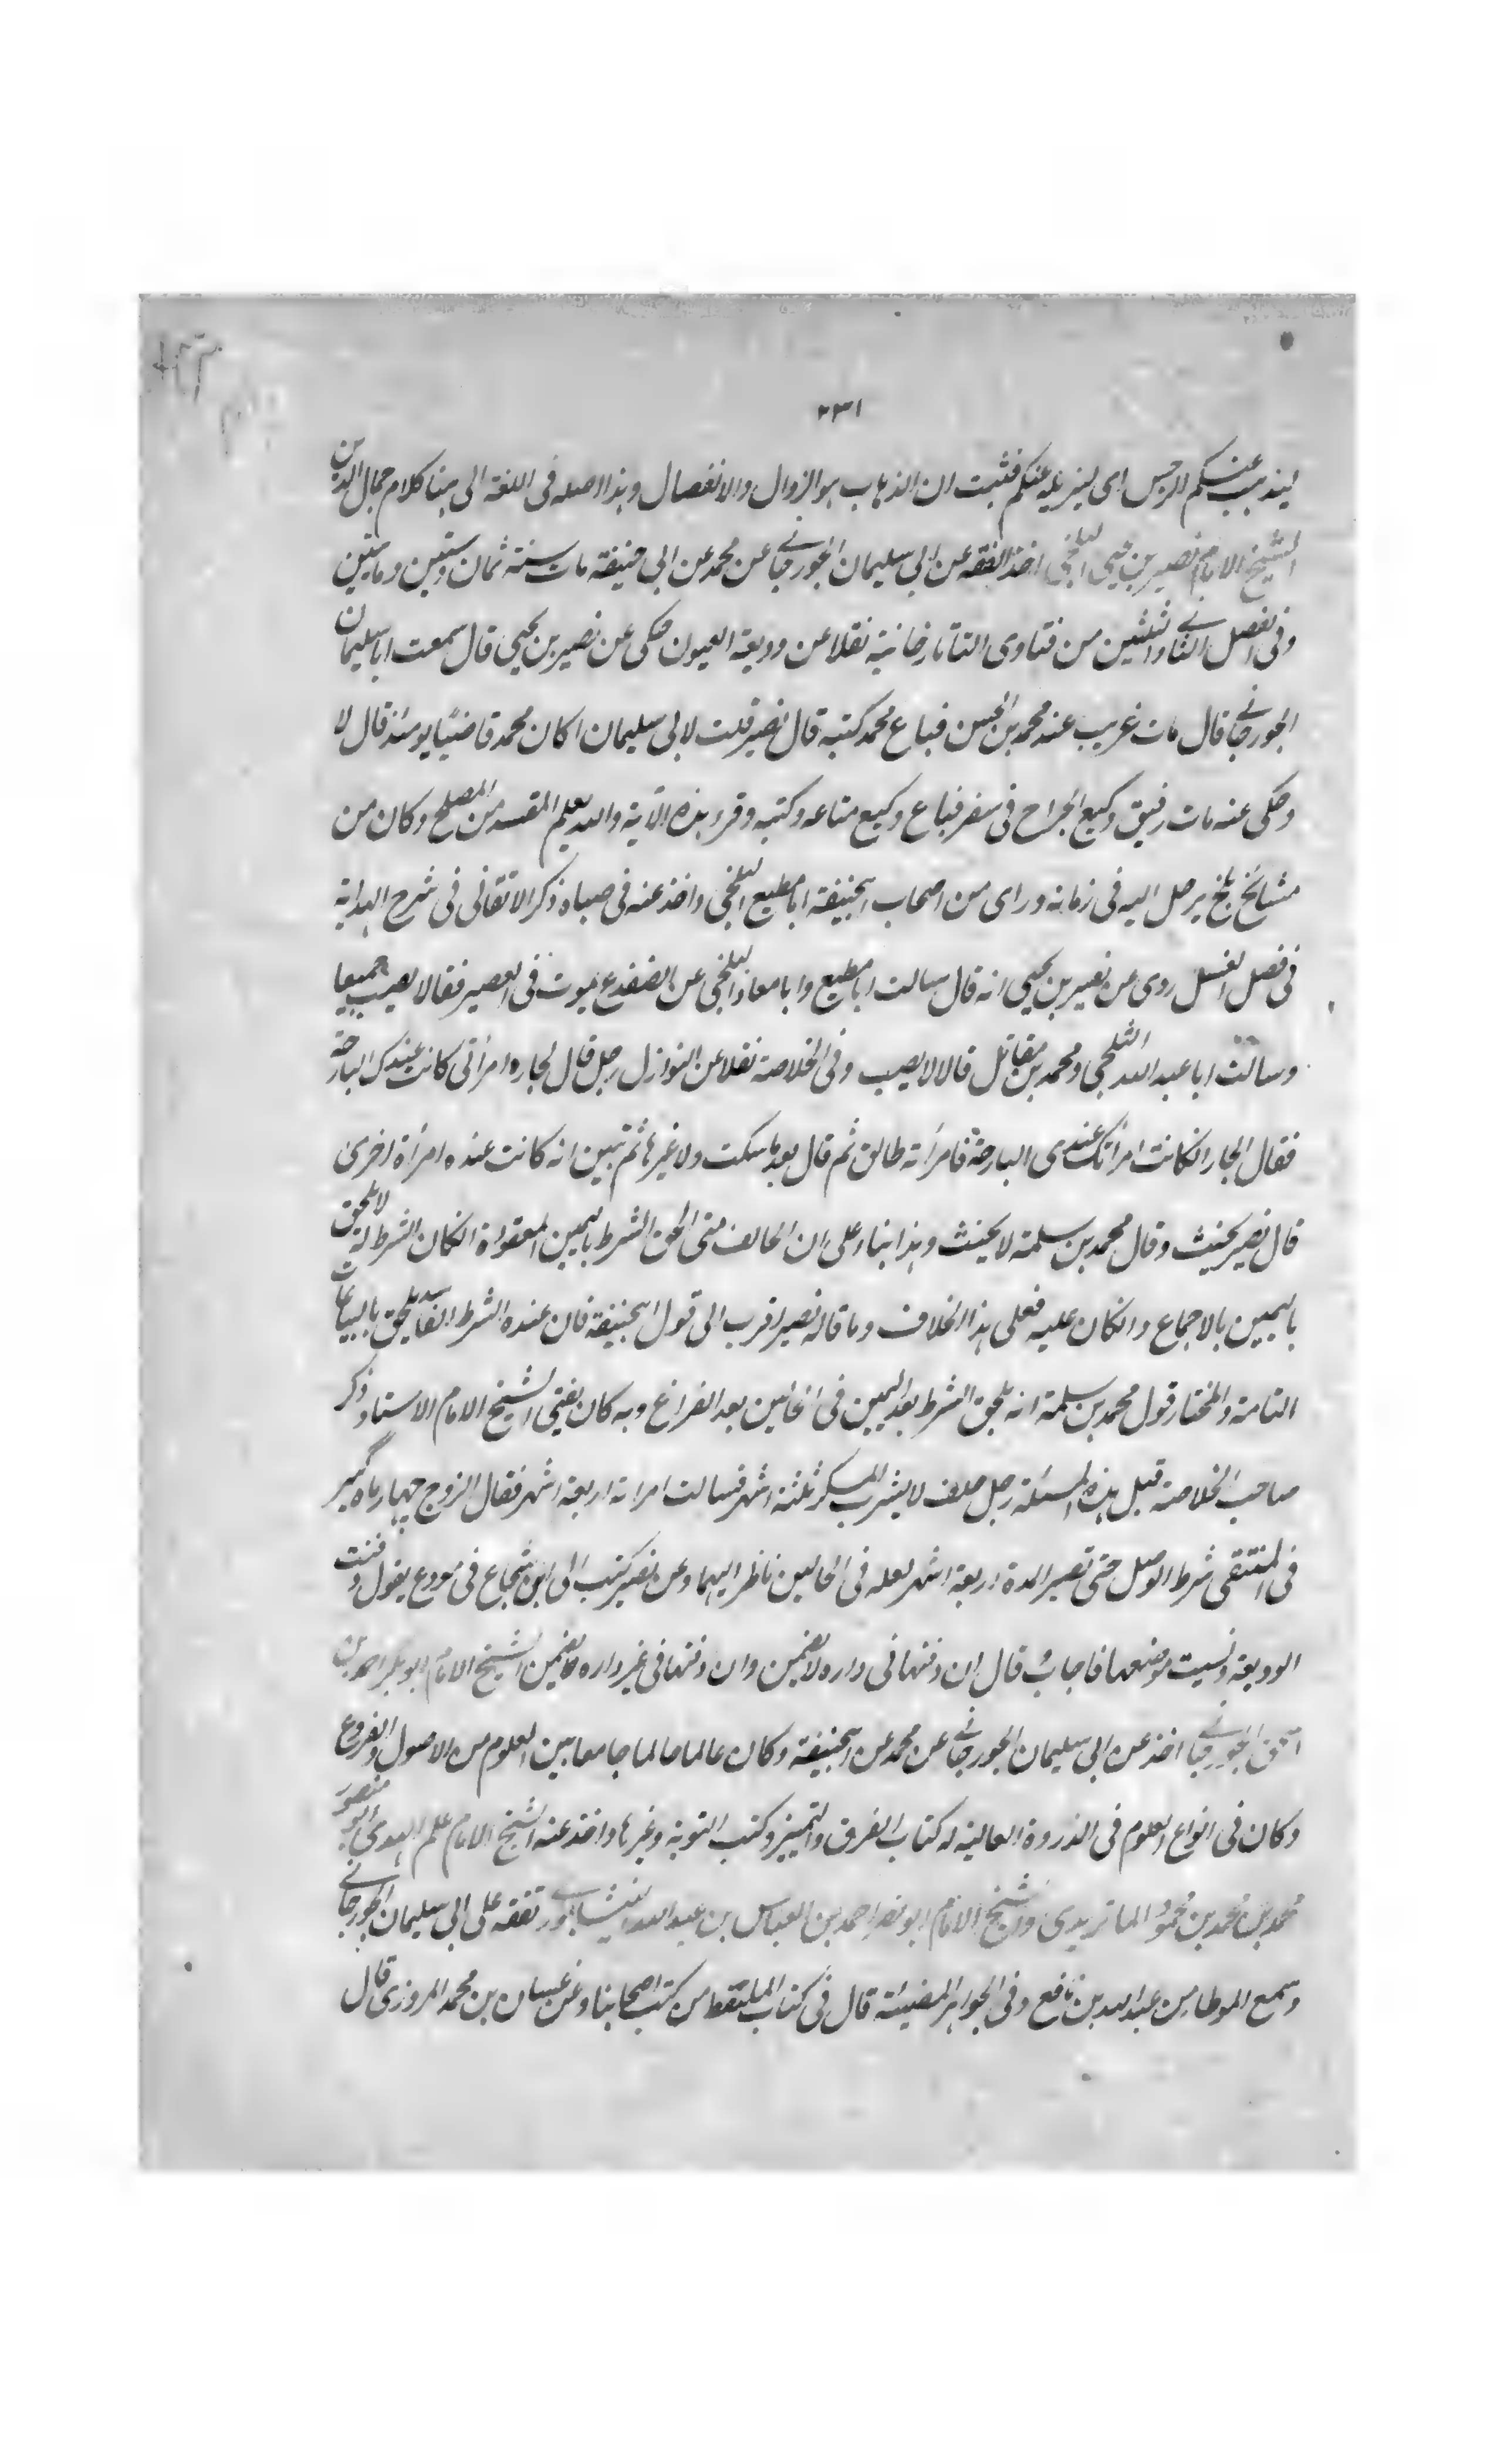 ٢٣١
ليذهب عنكم الرجس اى ليزيله عنكم فثبت ان الذهاب هو الزوال والانفصال وهذا اصله فى اللغة الى هنا كلام جمال الدين
الشيخ الامام نصير بن يحيى البلخى اخذ الفقه عن ابى سليمان الجورجانى عن محمد عن ابى حنيفة مات سنة ثمان وستين ومايتين
وفى الفصل الثانى والثلثين من فتاوى التاتارخانية نقلا عن وديعة العيون حكى عن نصير بن يحيى قال سمعت ابا سليمان
الجورجانى قال مات غريب عند محمد بن الحسن فباع محمد كتبه قال نصير قلت لابى سليمان اكان محمد قاضيا يومئذ قال لا
وحكى عنه مات رفيق وكيع الجراح فى سفر فباع وكيع متاعه وكتبه وقرء هذه الآية والله يعلم المفسد من المصلح وكان من
مشايخ بلخ يرحل اليه فى زمانه وراى من اصحاب ابيحنيفة ابا مطيع البلخى واخذ عنه فى صباه ذكر الاتقانى فى شرح الهداية
فى فصل الغسل روى عن نصير بن يحيى انه قال سالت ابا مطيع وابا معاذ البلخى عن الضفدع يموت فى العصير فقالا يصب جميعا
وسالت ابا عبد الله الثلجى ومحمد بن مقاتل قالا لا يصب وفى الخلاصة نقلا عن النوازل رجل قال لجاره امرأتى كانت عندك البارحة
فقال الجار انكانت امرأتك عندى البارحة فامرأته طالق ثم قال بعد ما سكت ولا غيرها ثم تبين انه كانت عنده امرأة اخرى
قال نصير يحنث وقال محمد بن سلمة لا يحنث وهذا بناء على ان الحالف متى الحق الشرط باليمين المعقودة انكان الشرط له لا يلحق
باليمين بالاجماع وانكان عليه فعلى هذا الخلاف وما قاله نصير اقرب الى قول ابيحنيفة فان عنده الشرط الفاسد يلحق بالبياعات
التامة والمختار قول محمد بن سلمة انه يلحق الشرط بعد اليمين فى الحالين بعد الفراغ وبه كان يفتى الشيخ الامام الاستاد ذكر
صاحب الخلاصة قبل هذه المسئلة رجل حلف لا يشرب المسكر ثلثة اشهر فسالت امراته اربعة اشهر فقال الزوج چهار ماه گير
فى المنتقى شرط الوصل حتى تصير المدة اربعة اشهر لعله فى الحالين ناظر اليهما وعن نصير كتب الى ابن شجاع فى مودع يقول دفنت
الوديعة ونسيت موضعها فاجاب قال ان دفنتها فى داره لا يضمن وان دفنتها فى غير داره يضمن الشيخ الامام ابو بكر احمد بن
اسحق الجورجانى اخذ عن ابى سليمان الجورجانى عن محمد عن ابيحنيفة وكان عالما جامعا بين العلوم من الاصول والفروع
وكان فى انواع العلوم فى الذروة العالية له كتاب الفرق والتمييز وكتب التوبة وغيرها واخذ عنه الشيخ الامام علم الهدى ابو منصور
محمد بن محمد بن محمود الماتريدى والشيخ الامام ابو نصر احمد بن العباس بن عبد الله النيشابورى تفقه على ابى سليمان الجورجانى
وسمع الموطا من عبد الله بن نافع وفى الجواهر المضيئة قال فى كتاب الملتقط من كتب اصحابنا وعن غسان بن محمد المروزى قال